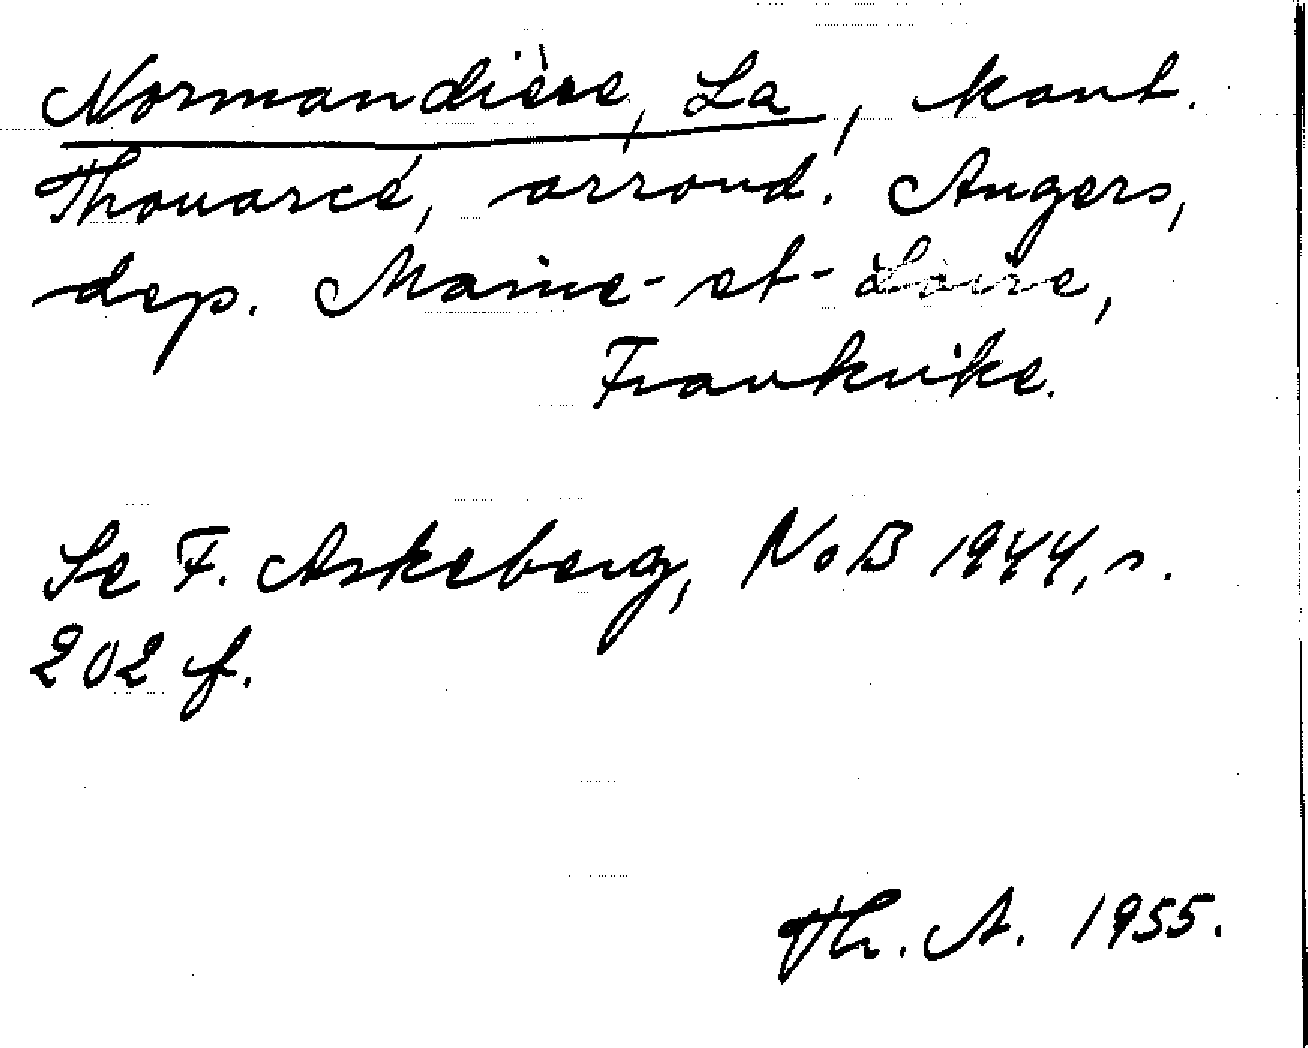 Normandière, La, kant.
Thouarcé, arrond. Angers,
dep. Maine-et-Loire,
Frankrike.
Se F. Askeberg, NoB 1944, s.
202 f.
Th. A. 1955.